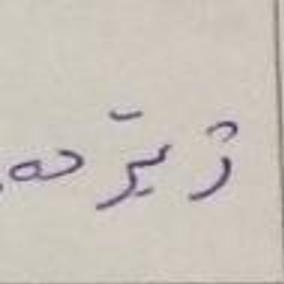 ژیرده